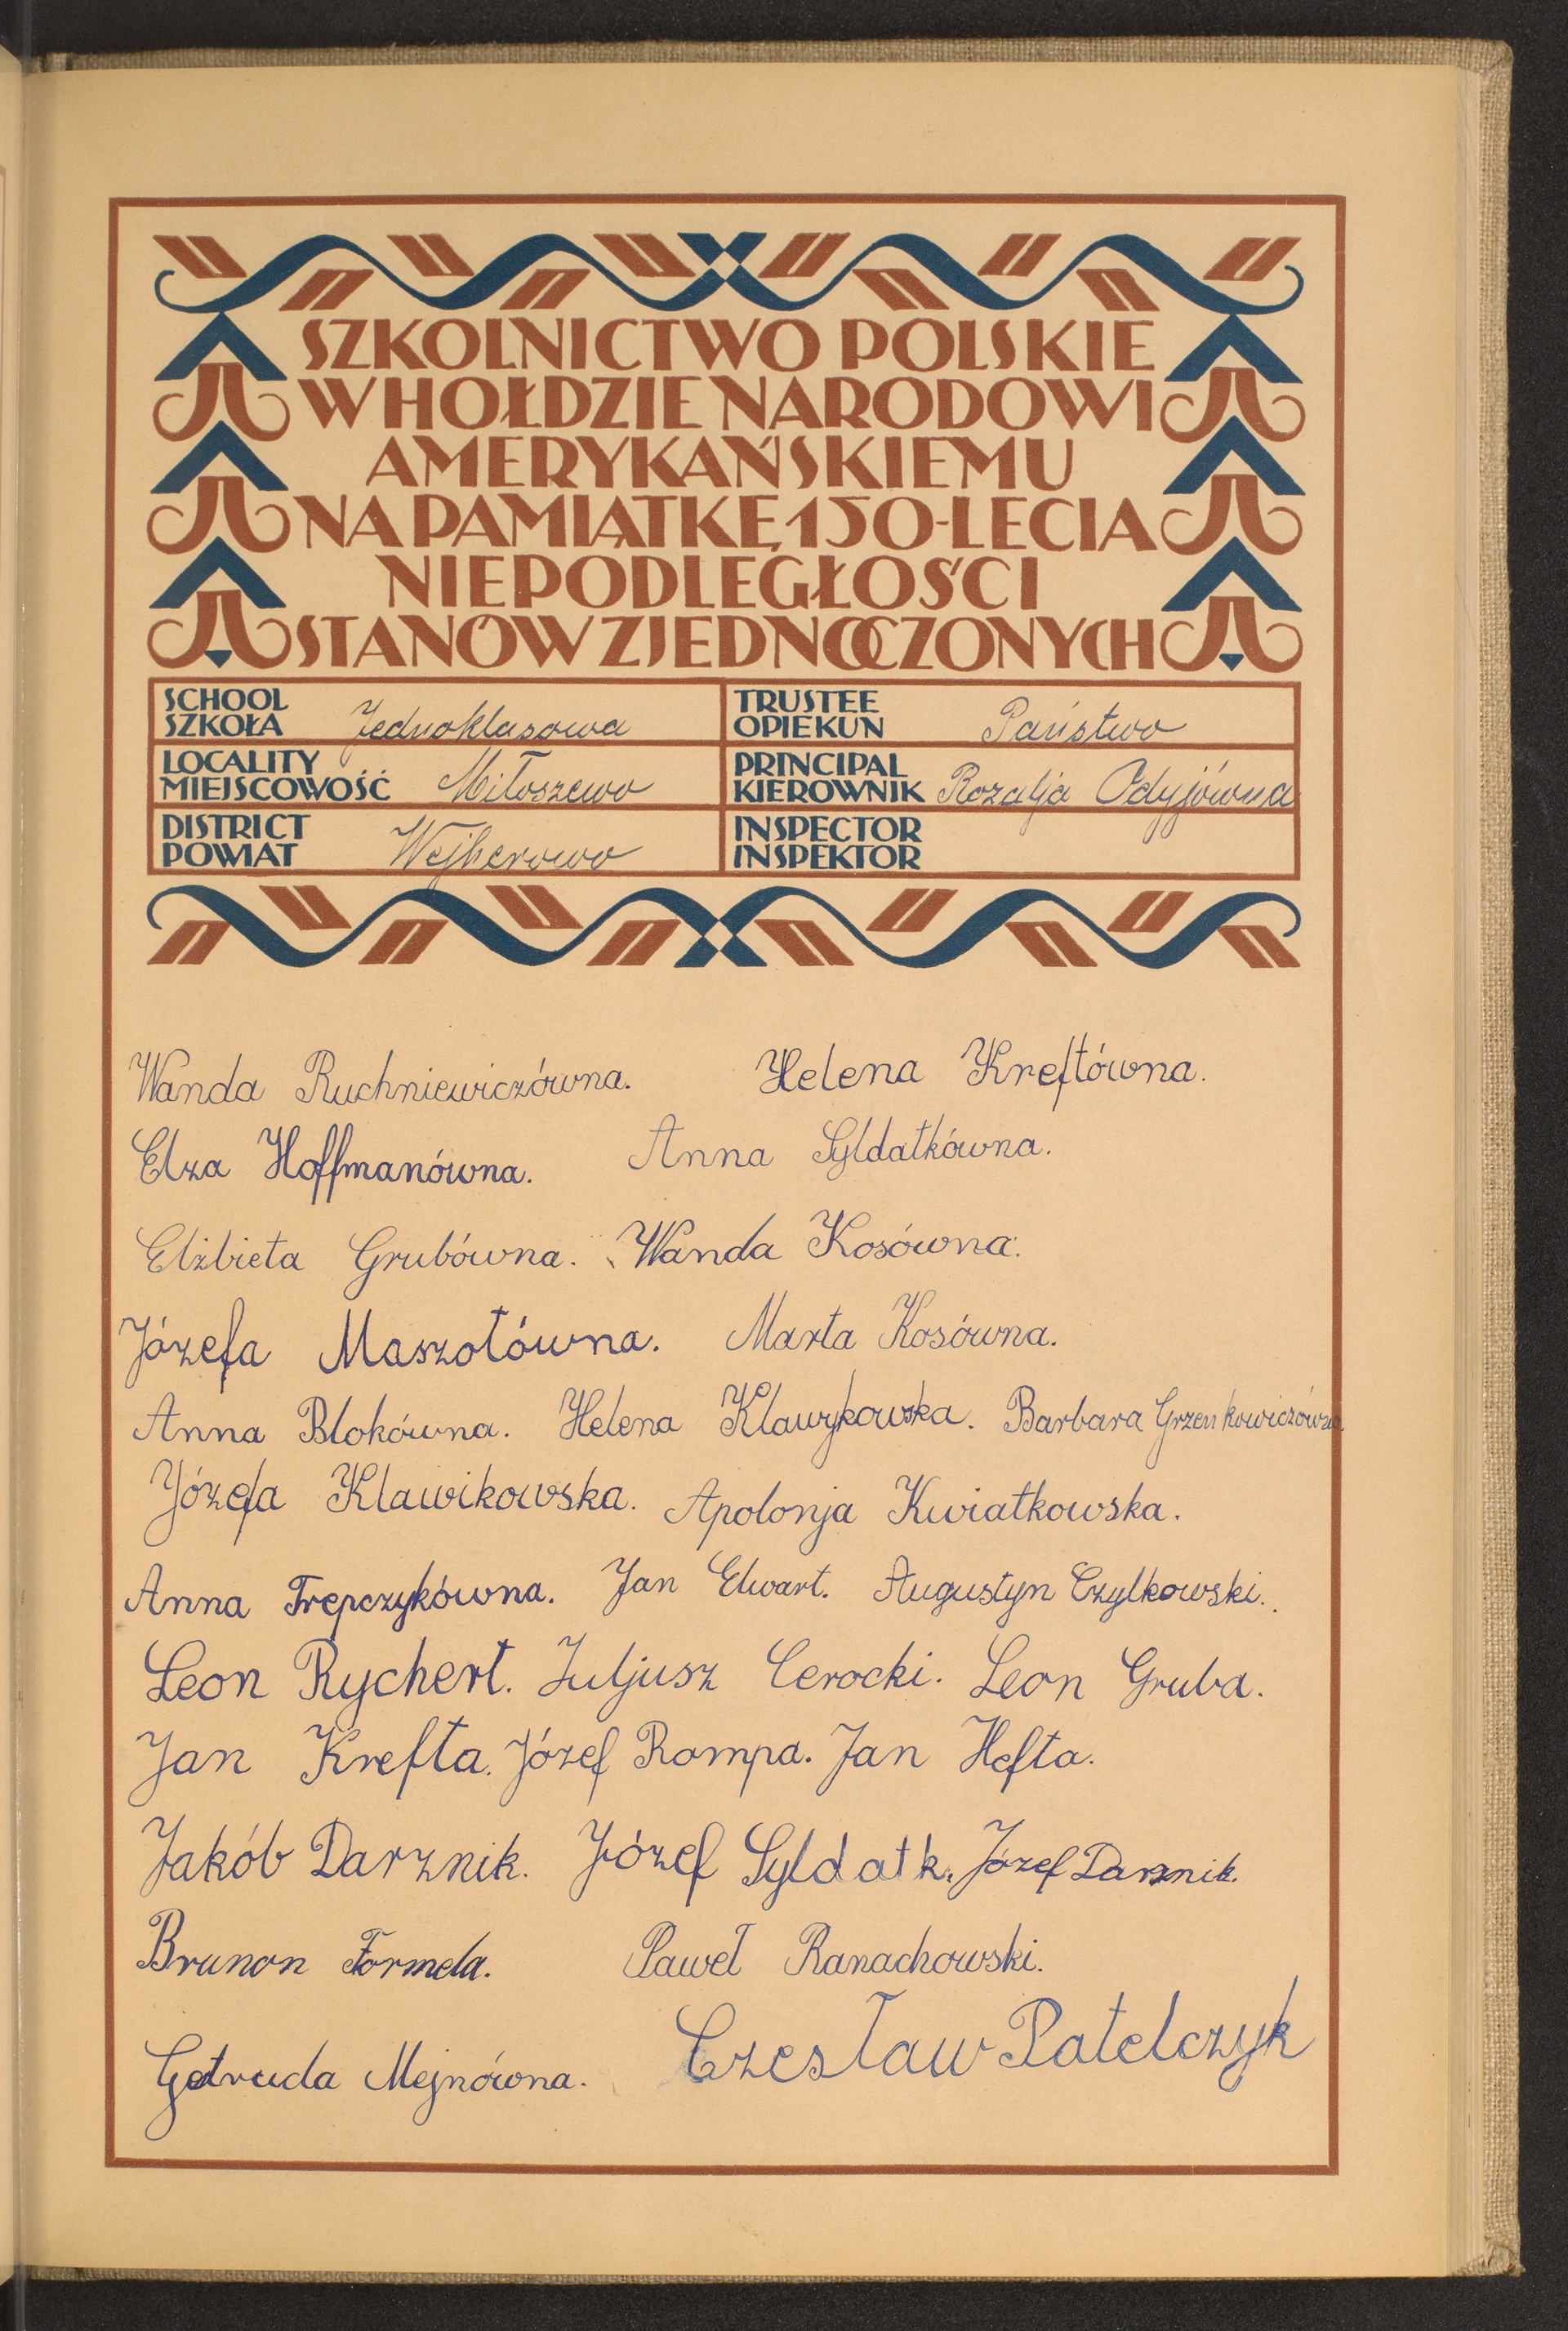 SZKOLNICTWO POLSKIE
W HOŁDZIE NARODOWI
AMERYKAŃSKIEMU
NA PAMIĄTKĘ 150-LECIA
NIEPODLEGŁOŚCI
STANÓW ZJEDNOCZONYCH
SCHOOL
SZKOŁA Jednoklasowa
TRUSTEE
OPIEKUN Państwo
LOCALITY
MIEJSCOWOŚĆ Miłoszewo
PRINCIPAL
KIEROWNIK Rozalja Odyjówna
DISTRICT
POWIAT Wejherowo
INSPECTOR
INSPEKTOR
Wanda Ruchniewiczówna. Helena Kreftówna.
Elza Hoffmanówna. Anna Syldatkówna.
Elżbieta Grubówna. Wanda Kosówna.
Józefa Maszotówna. Marta Kosówna.
Anna Blokówna. Helena Klawykowska. Barbara Grzenkowiczówna.
Józefa Klawikowska. Apolonja Kwiatkowska.
Anna Trepczykówna. Jan Elwart. Augustyn Czylkowski.
Leon Rychert. Juljusz Cerocki. Leon Gruba.
Jan Krefta. Józef Rompa. Jan Hefta.
Jakób Darznik. Józef Syldatk. Józef Darznik.
Brunon Formela. Paweł Ranachowski.
Getruda Mejnówna. Czesław Patelczyk